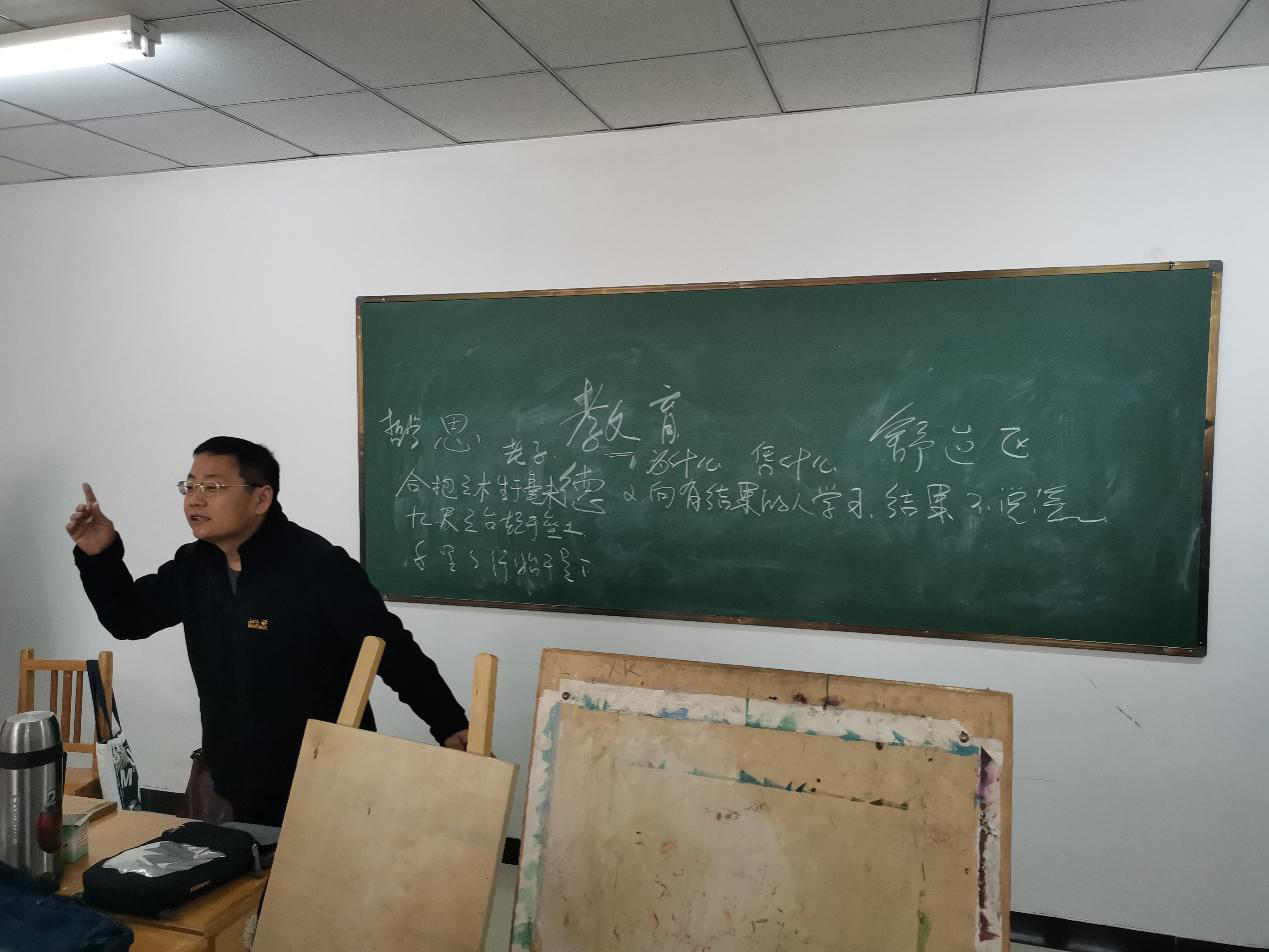 哲思 教育 舒立飞
老子 为什么 凭什么
合抱之木生于毫末 德 又向有结果的人学习 结果不说谎
九层之台起于垒土
千里之行始于足下
Jack